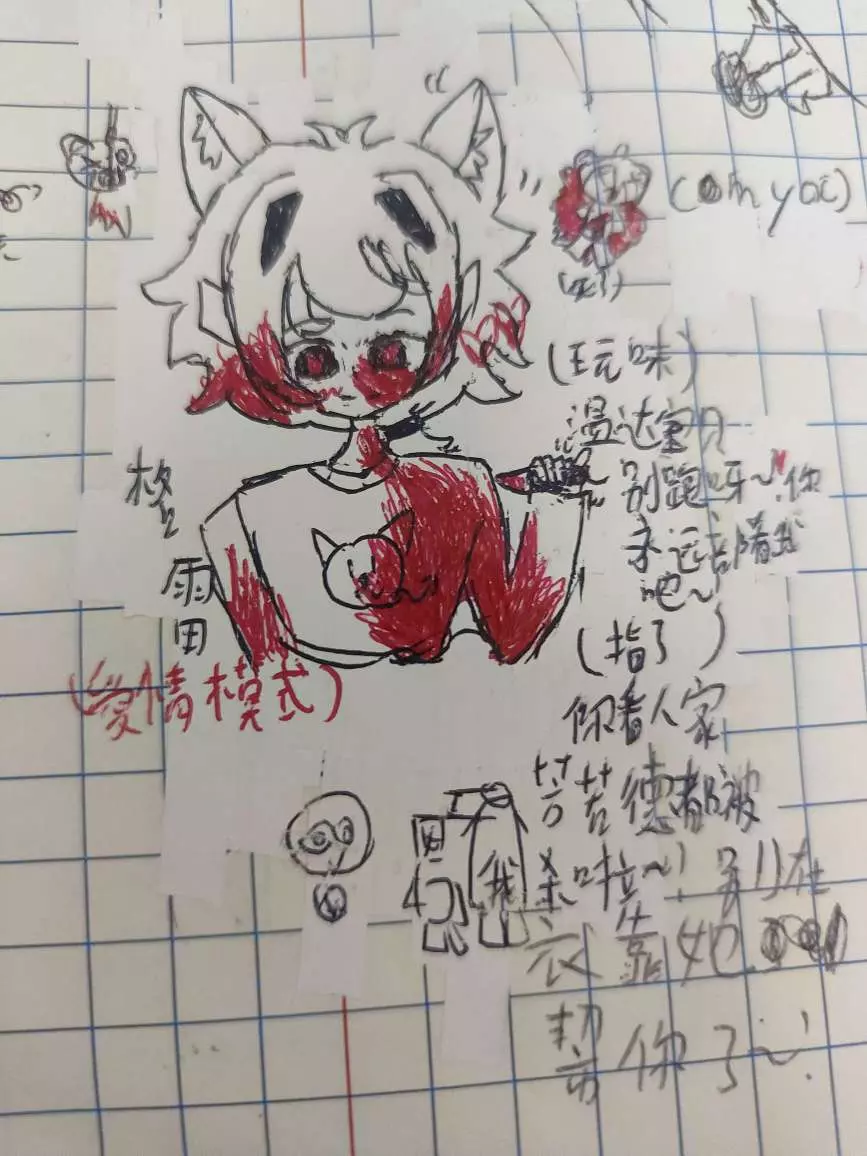 (玩味)
温达宝贝
别跑呀~!你
永远陪着我
吧~
格
雷
(爱情模式)
(指了)
你看人家
芬苦德都被
杀啦~!别在
依靠她
帮你了~!
我